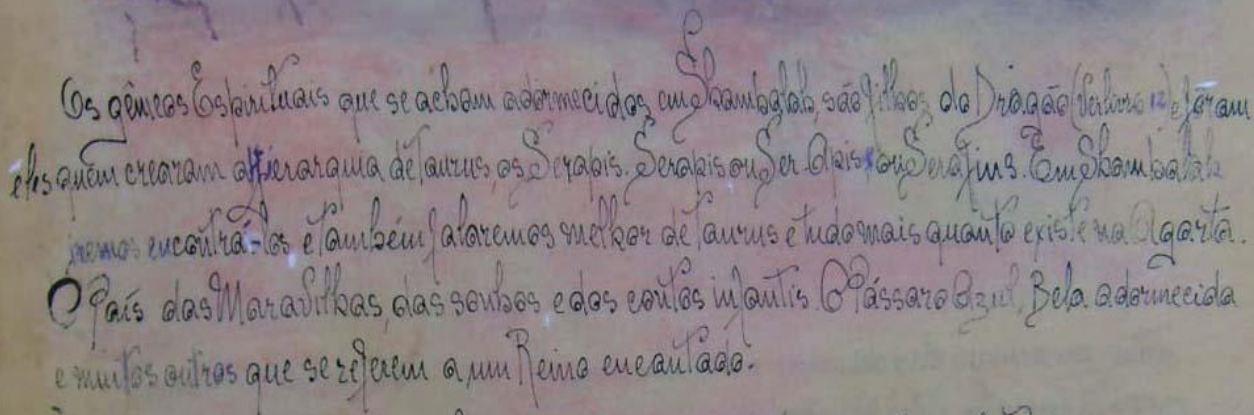 Os gêmeos Espirituais que se acham adormecidos em Shamballah, são filhos do Dragão (Ver livro 12) e foram
eles quem crearam a Hierarquia de Taurus, os Serapis. Serapis ou Ser Apis ou Serafins. Em Shamballah
iremos encontrá-los e também falaremos melhor de Taurus e tudo mais quanto existe na Agarta.
O País das Maravilhas, dos sonhos e dos contos infantis. O Pássaro Azul, Bela adormecida
e muitos outros que se referem a um Reino encantado.